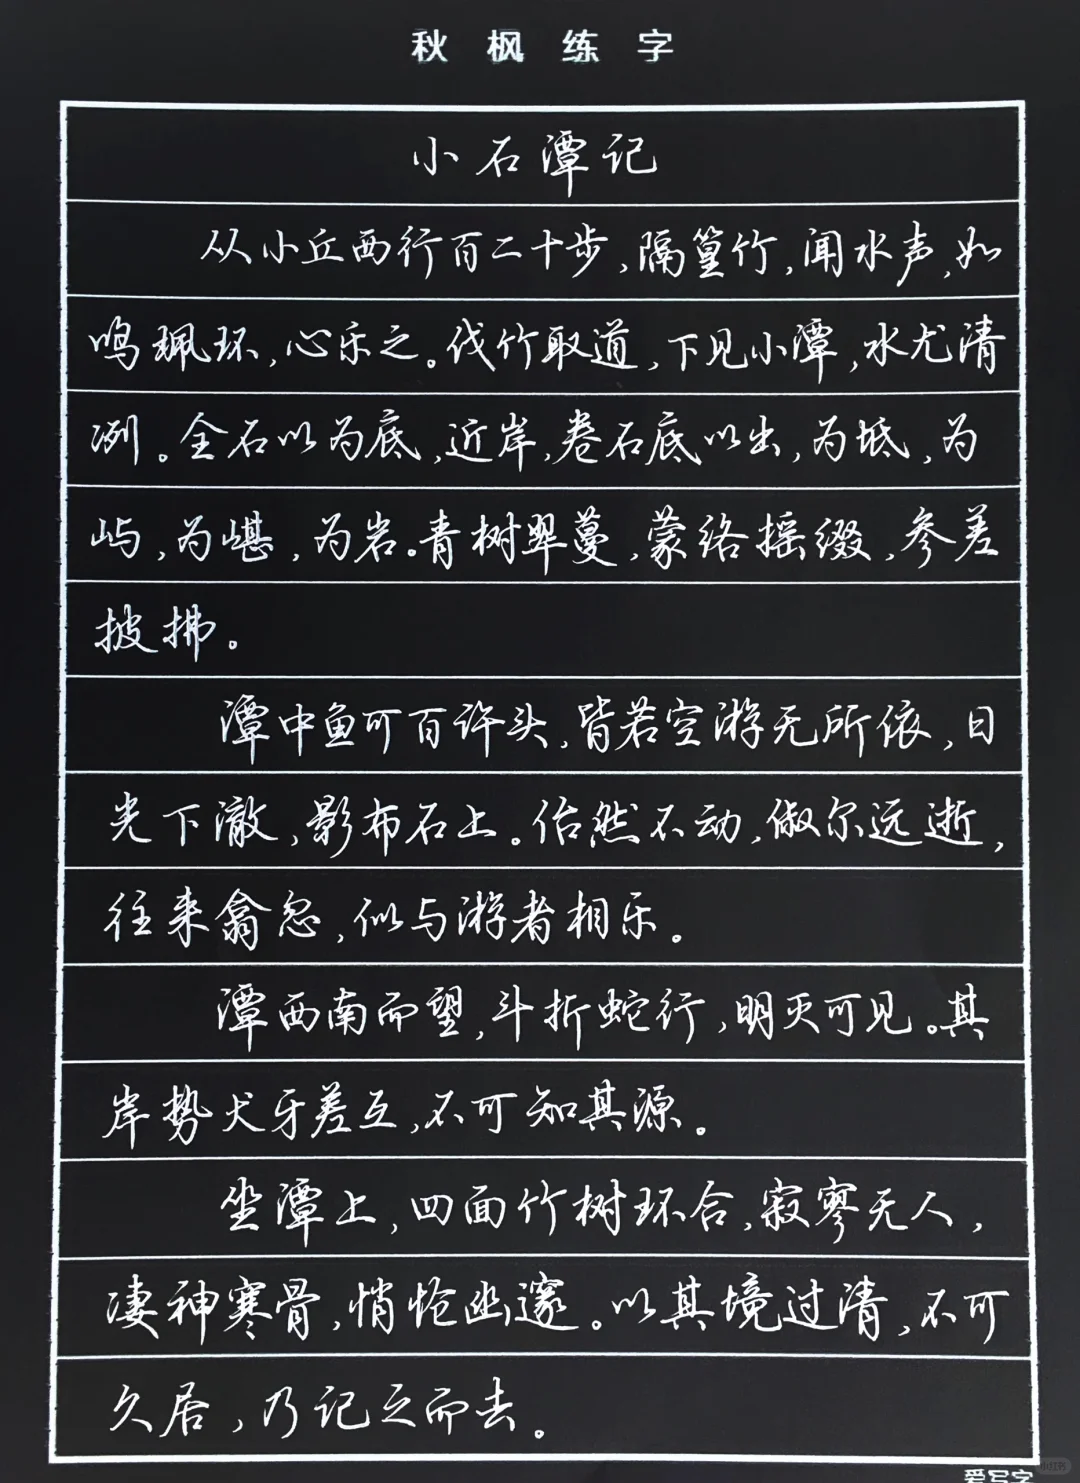 秋枫练字
小石潭记
从小丘西行百二十步,隔篁竹,闻水声,如
鸣珮环,心乐之。伐竹取道,下见小潭,水尤清
冽。全石以为底,近岸,卷石底以出,为坻,为
屿,为嵁,为岩。青树翠蔓,蒙络摇缀,参差
披拂。
潭中鱼可百许头,皆若空游无所依,日
光下澈,影布石上。佁然不动,俶尔远逝,
往来翕忽,似与游者相乐。
潭西南而望,斗折蛇行,明灭可见。其
岸势犬牙差互,不可知其源。
坐潭上,四面竹树环合,寂寥无人,
凄神寒骨,悄怆幽邃。以其境过清,不可
久居,乃记之而去。
小红书